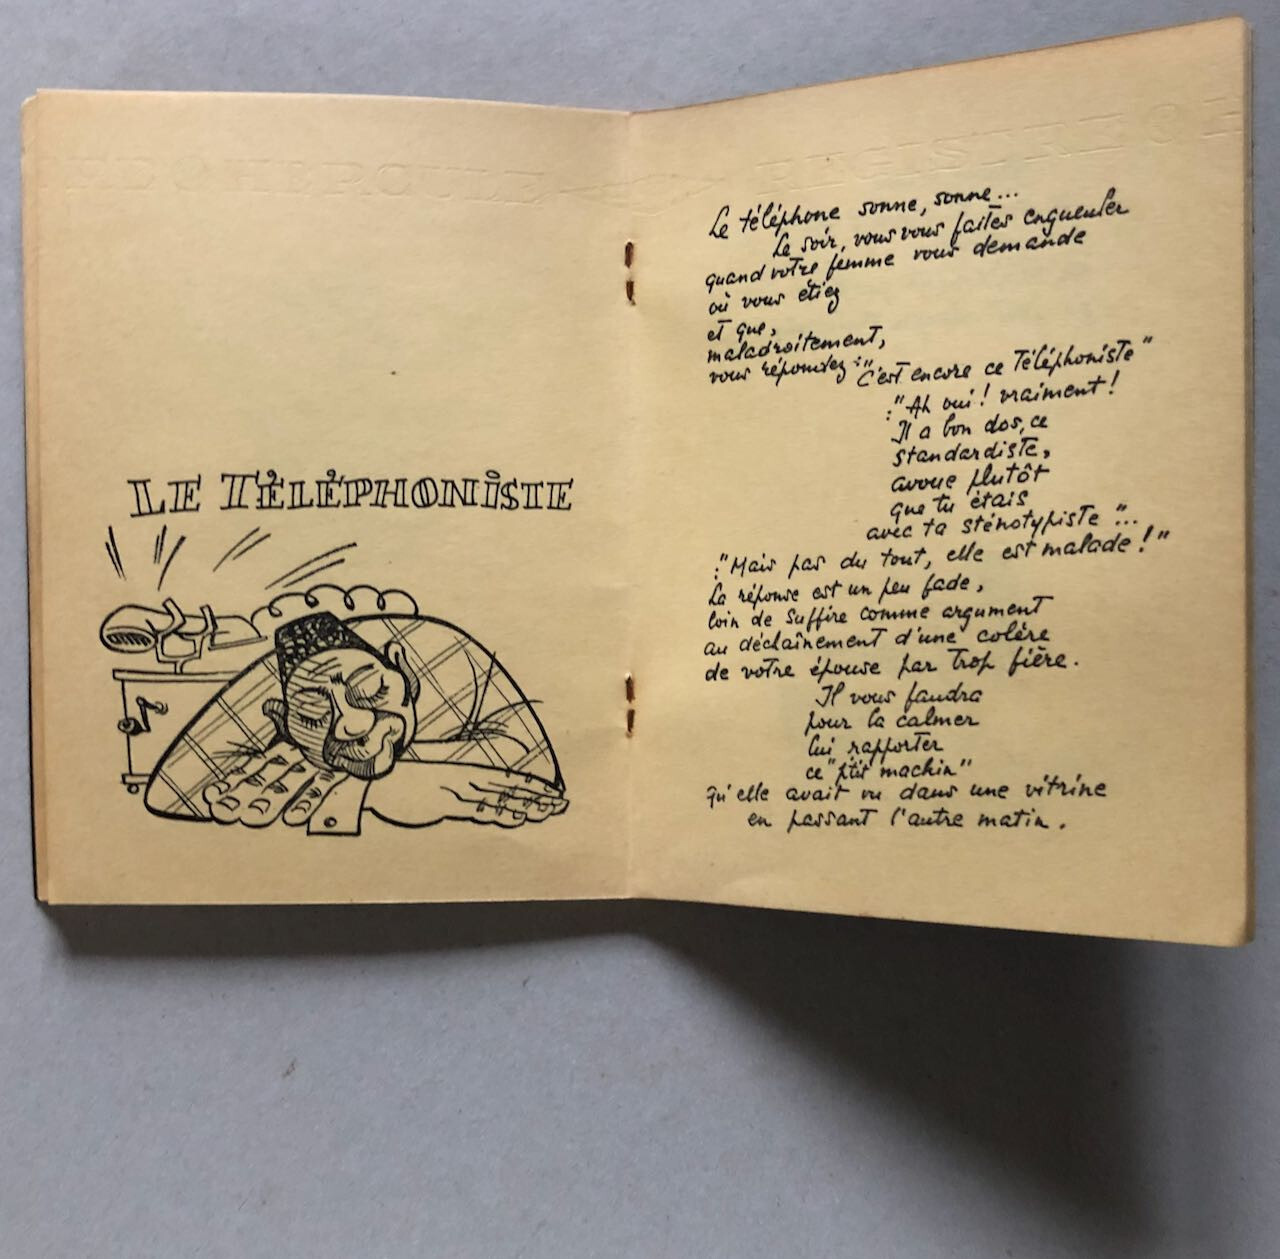 HERCULE
REGISTRE
LE TÉLÉPHONISTE
Le téléphone sonne, sonne...
Le soir, vous vous faites engueuler
quand votre femme vous demande
où vous étiez
et que,
maladroitement,
vous répondez :"C'est encore ce Téléphoniste"
:"Ah oui ! vraiment !
Il a bon dos, ce
standardiste,
avoue plutôt
que tu étais
avec ta sténotypiste"...
:"Mais pas du tout, elle est malade !"
La réponse est un peu fade,
loin de suffire comme argument
au déchaînement d'une colère
de votre épouse par trop fière.
Il vous faudra
pour la calmer
lui rapporter
ce "ptit machin"
qu'elle avait vu dans une vitrine
en passant l'autre matin.